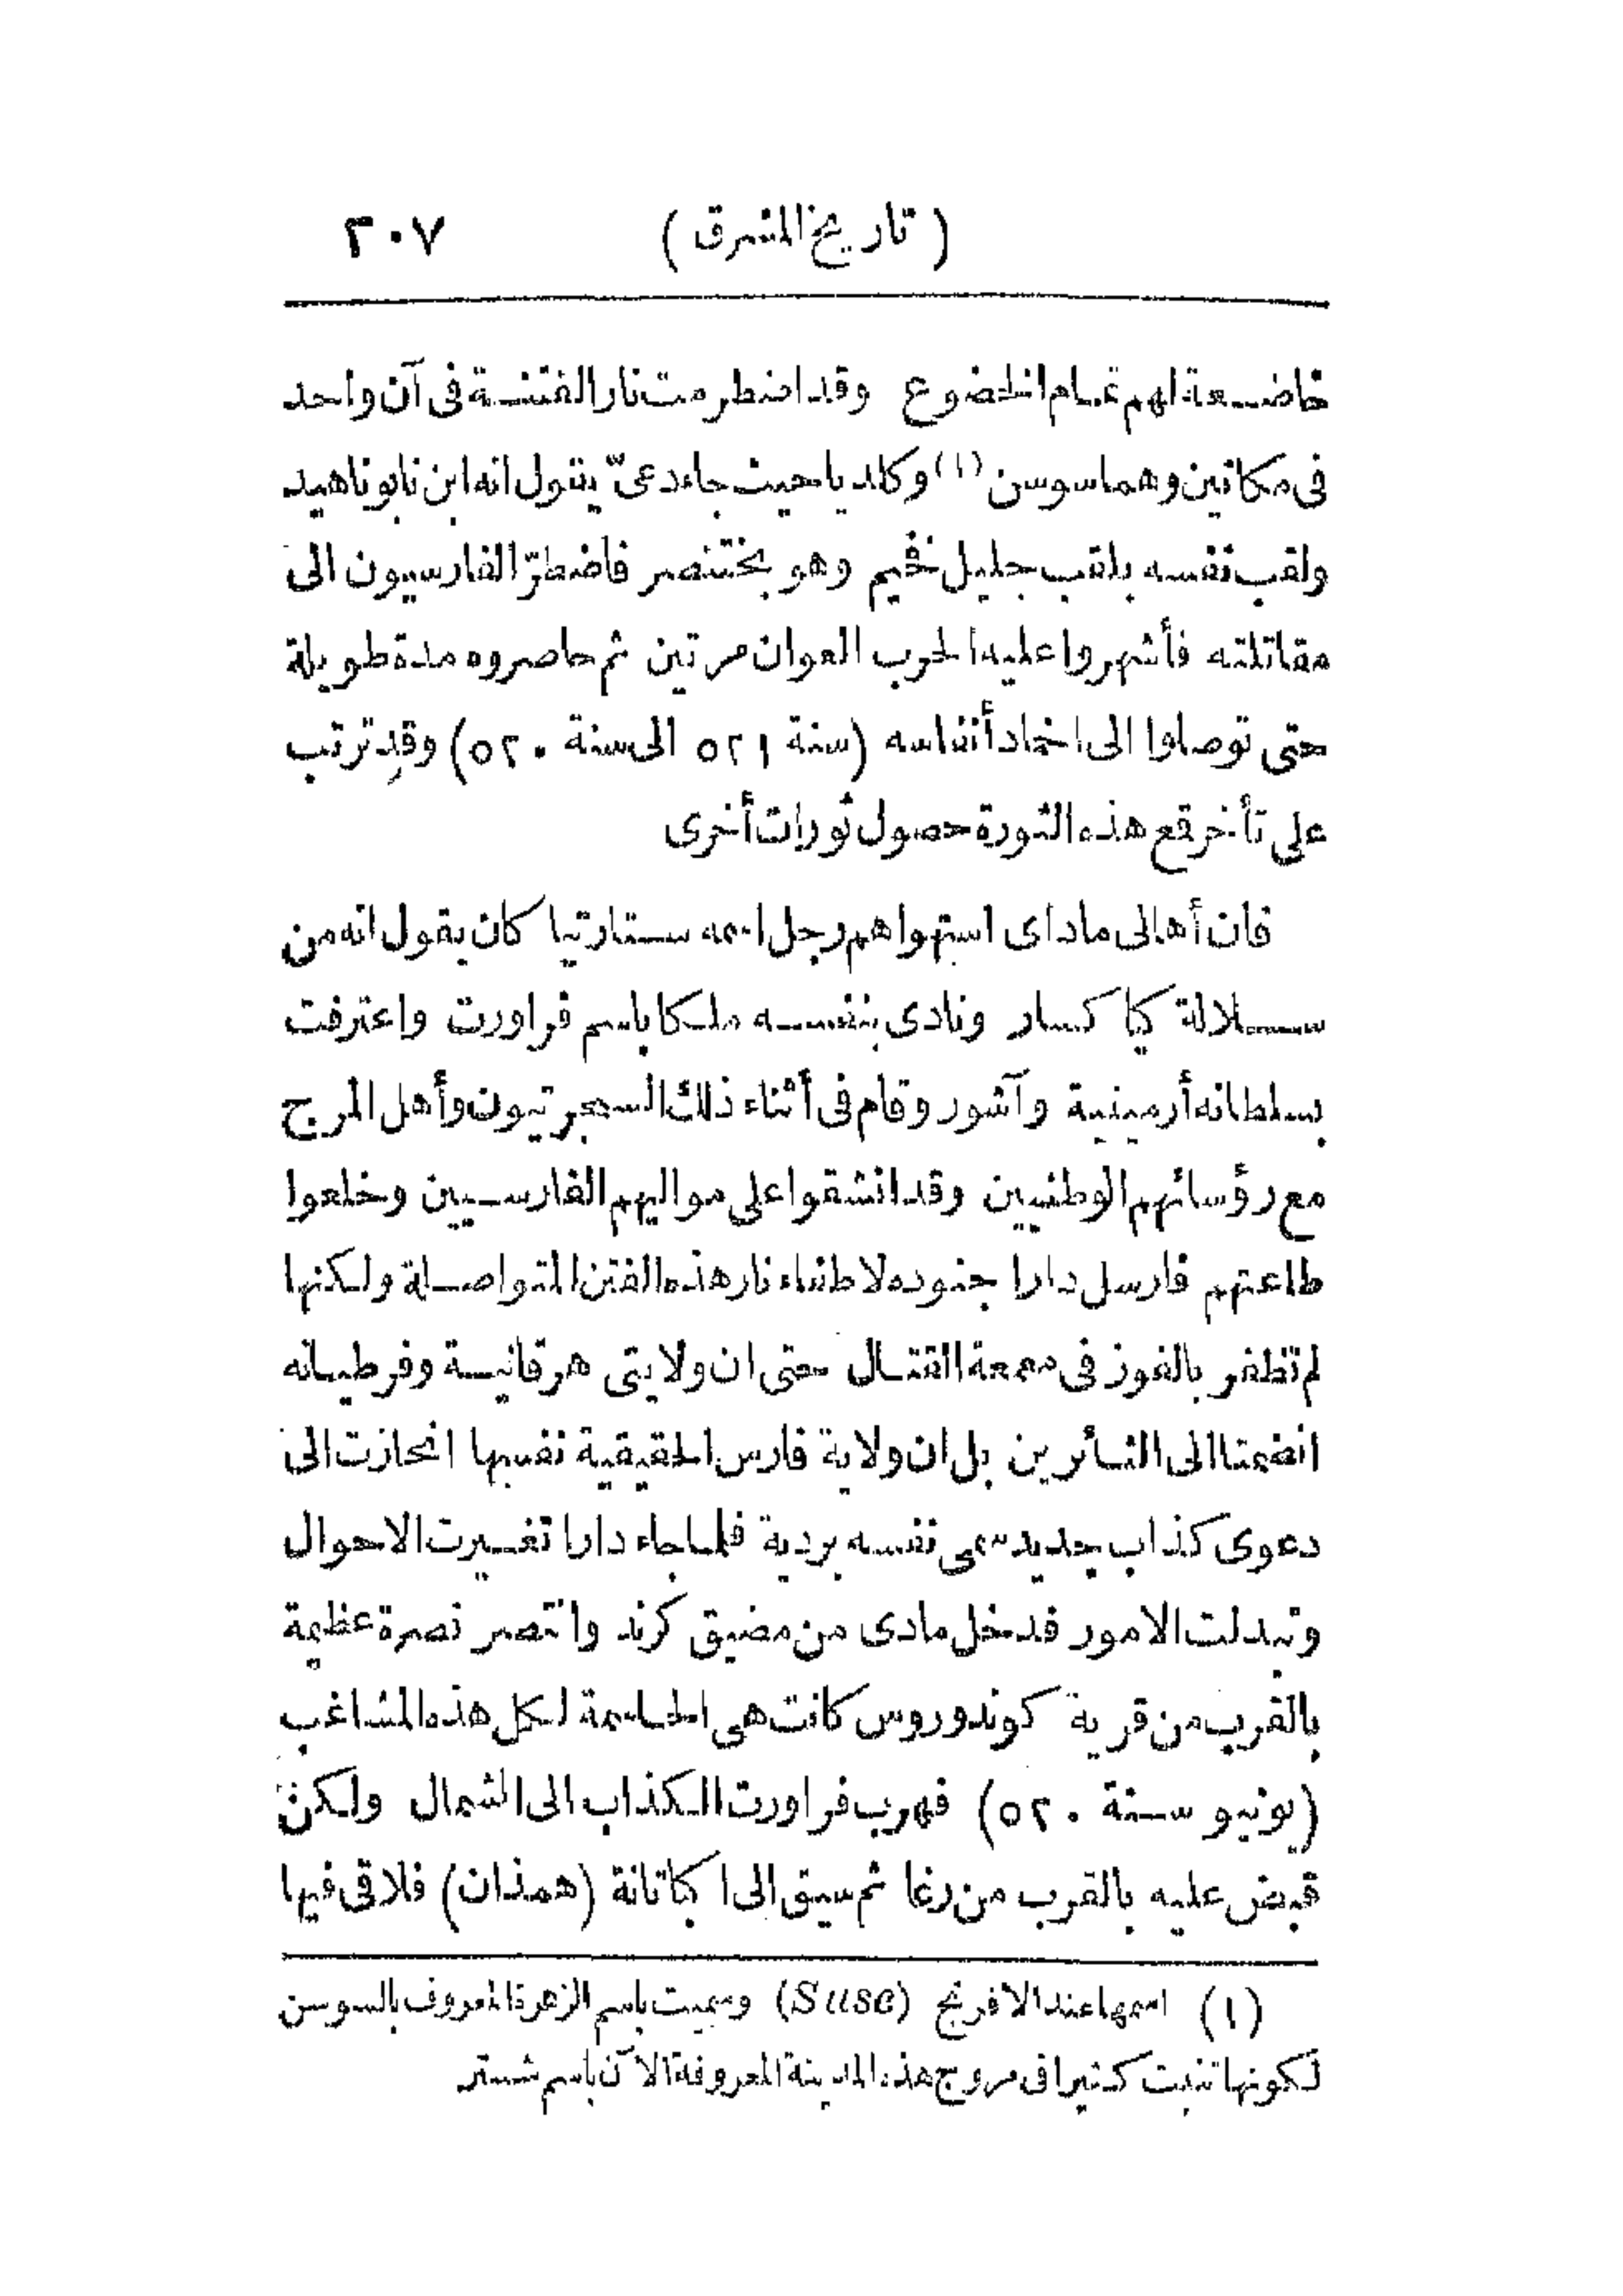 ( تاريخ المشرق ) ٢٠٧
خاضعة لهم تمام الخضوع وقد اضطرمت نار الفتنة فى آن واحد
فى مكانين وهما سوسن (١) وكلديا حيث جاء دعىّ يقول انه ابن نابوناهيد
ولقب نفسه بلقب جليل فخيم وهو بختنصر فاضطرّ الفارسيون الى
مقاتلته فأشهروا عليه الحرب العوان مرتين ثم حاصروه مدة طويلة
حتى توصلوا الى اخماد أنفاسه (سنة ٥٢١ الى سنة ٥٢٠) وقد ترتب
على تأخر قمع هذه الثورة حصول ثورات أخرى
فان أهالى ماداى استهواهم رجل اسمه ستارتيا كان يقول انه من
سلالة كيا كسار ونادى بنفسه ملكا باسم فراورت واعترفت
بسلطانه أرمينية وآشور وقام فى أثناء ذلك السجرتيون وأهل المرج
مع رؤسائهم الوطنيين وقد انشقوا على مواليهم الفارسيين وخلعوا
طاعتهم فارسل دارا جنوده لاطفاء نار هذه الفتن المتواصلة ولكنها
لم تظفر بالفوز فى معمعة القتال حتى ان ولايتى هرقانية وفرطيانه
انضمتا الى الثائرين بل ان ولاية فارس الحقيقية نفسها انحازت الى
دعوى كذاب جديد سمى نفسه بردية فلما جاء دارا تغيرت الاحوال
وتبدلت الامور فدخل مادى من مضيق كرند وانتصر نصرة عظيمة
بالقرب من قرية كوندوروس كانت هى الحاسمة لكل هذه المشاغب
(يونيو سنة ٥٢٠) فهرب فراورت الكذاب الى الشمال ولكن
قبض عليه بالقرب من رغا ثم سيق الى اكباتانة (همذان) فلاقى فيها
(١) اسمها عند الافرنج (Suse) وسميت باسم الزهرة المعروف بالسوسن
لكونها تنبت كثيرا فى مروج هذه المدينة المعروفة الآن باسم شستر